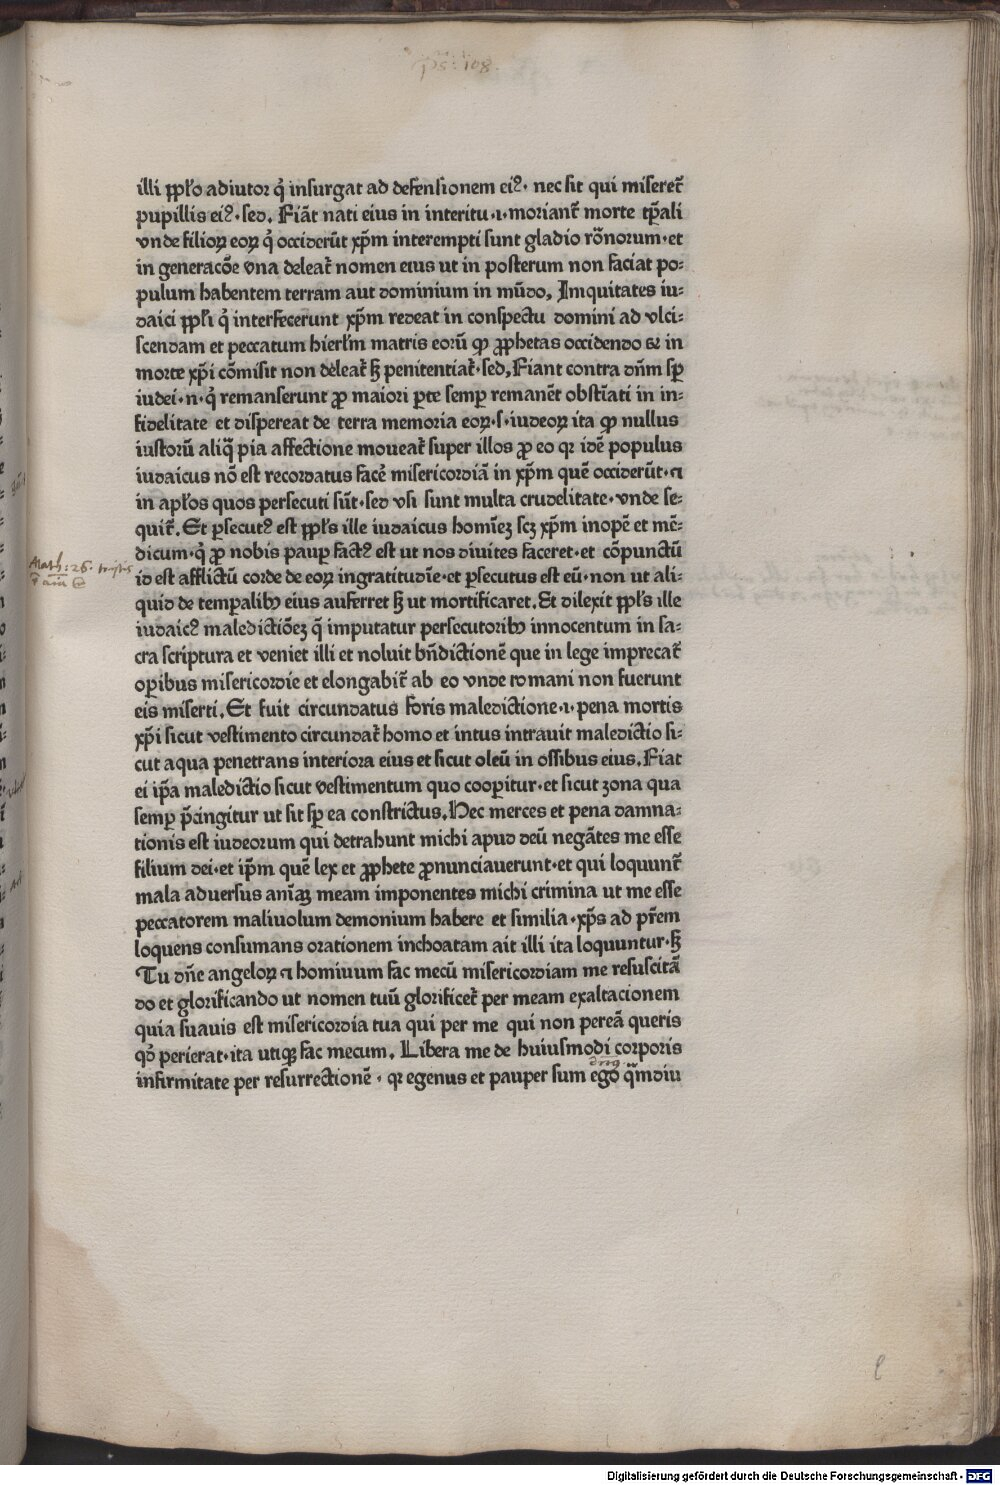 ps: 108.
illi ꝓpło adiutor q̇ insurgat ad defensionem eiꝰ· nec sit qui misereat᷑
pupillis eiꝰ·sed. Fiãt nati eius in interitu·ı·moriant᷑ morte tp̃ali
vnde filioꝝ eoꝝ q̇ occiderũt xp̃m interempti sunt gladio rõnorum·et
in generacõe vna deleat᷑ nomen eius ut in posterum non faciat po⸗
pulum habentem terram aut dominium in mũdo, Imquitates iu⸗
daici ꝓpłi q̇ interfecerunt xp̃m redeat in conspectu domini ad vlci⸗
scendam et peccatum hierłm matris eorũ ꝙ ꝓphetas occidendo & in
morte xp̃i cõmisit non deleat᷑ ꝫ penitentiat᷑·sed, Fiant contra dñm sꝑ
iudei·n·q̇ remanserunt ꝓ maiori ꝑte semꝑ remanẽt obstĩati in in⸗
fidelitate et dispereat de terra memoria eoꝝ·s·iudeoꝝ ita ꝙ nullus
iustorũ aliq̃ pia affectione moueat᷑ super illos ꝓ eo qꝛ idẽ populus
iudaicus nõ est recordatus facẽ misericordiã in xp̃m quẽ occiderũt·⁊
in apłos quos persecuti sũt·sed vsi sunt multa crudelitate·vnde se⸗
quit᷑. Et ꝑsecutꝰ est ꝓpłs ille iudaicus homĩeꝫ scꝫ xp̃m inopẽ et mẽ⸗
dicum·q̇ ꝓ nobis pauꝑ factꝰ est ut nos diuites faceret·et cõpunctũ
Math: 26. tristis
id est afflictũ corde de eoꝝ ingratitudĩe·et ꝑsecutus est eũ·non ut ali⸗
quid de temꝑalibꝰ eius auferret ꝫ ut mortificaret. Et dilexit ꝓpłs ille
iudaicꝰ maledictiõeꝫ q̃ imputatur persecutoribꝰ innocentum in sa⸗
cra scriptura et veniet illi et noluit bñdictionẽ que in lege imprecat᷑
oꝑibus misericordie et elongabit᷑ ab eo vnde romani non fuerunt
eis miserti. Et fuit circundatus foris maledictione·ı·pena mortis
xp̃i sicut vestimento circundat᷑ homo et intus intrauit maledictio si⸗
cut aqua penetrans interiora eius et sicut oleũ in ossibus eius. Fiat
ei ip̃a maledictio sicut vestimentum quo cooꝑitur·et sicut zona qua
semꝑ p̃cingitur ut sit sꝑ ea constrictus. Hec merces et pena damna⸗
tionis est iudeorum qui detrahunt michi apud deũ negãtes me esse
filium dei·et ip̃m quẽ lex et ꝓphete ꝓnunciauerunt·et qui loquunt᷑
mala aduersus anĩaꝫ meam imponentes michi crimina ut me esse
peccatorem maliuolum demonium habere et similia·xp̃s ad pr̃em
loquens consumans orationem inchoatam ait illi ita loquuntur·ꝫ
Tu dñe angeloꝝ ⁊ homiuum fac mecũ misericordiam me resuscitã
do et glorificando ut nomen tuũ glorificet᷑ per meam exaltacionem
quia suauis est misericordia tua qui per me qui non pereã queris
qd̾ perierat·ita utiqꝫ fac mecum. Libera me de huiusmodi corporis
infirmitate per resurrectionẽ · qꝛ egenus et pauper sum ego q̃mdiu
Digitalisierung gefördert durch die Deutsche Forschungsgemeinschaft - DFG